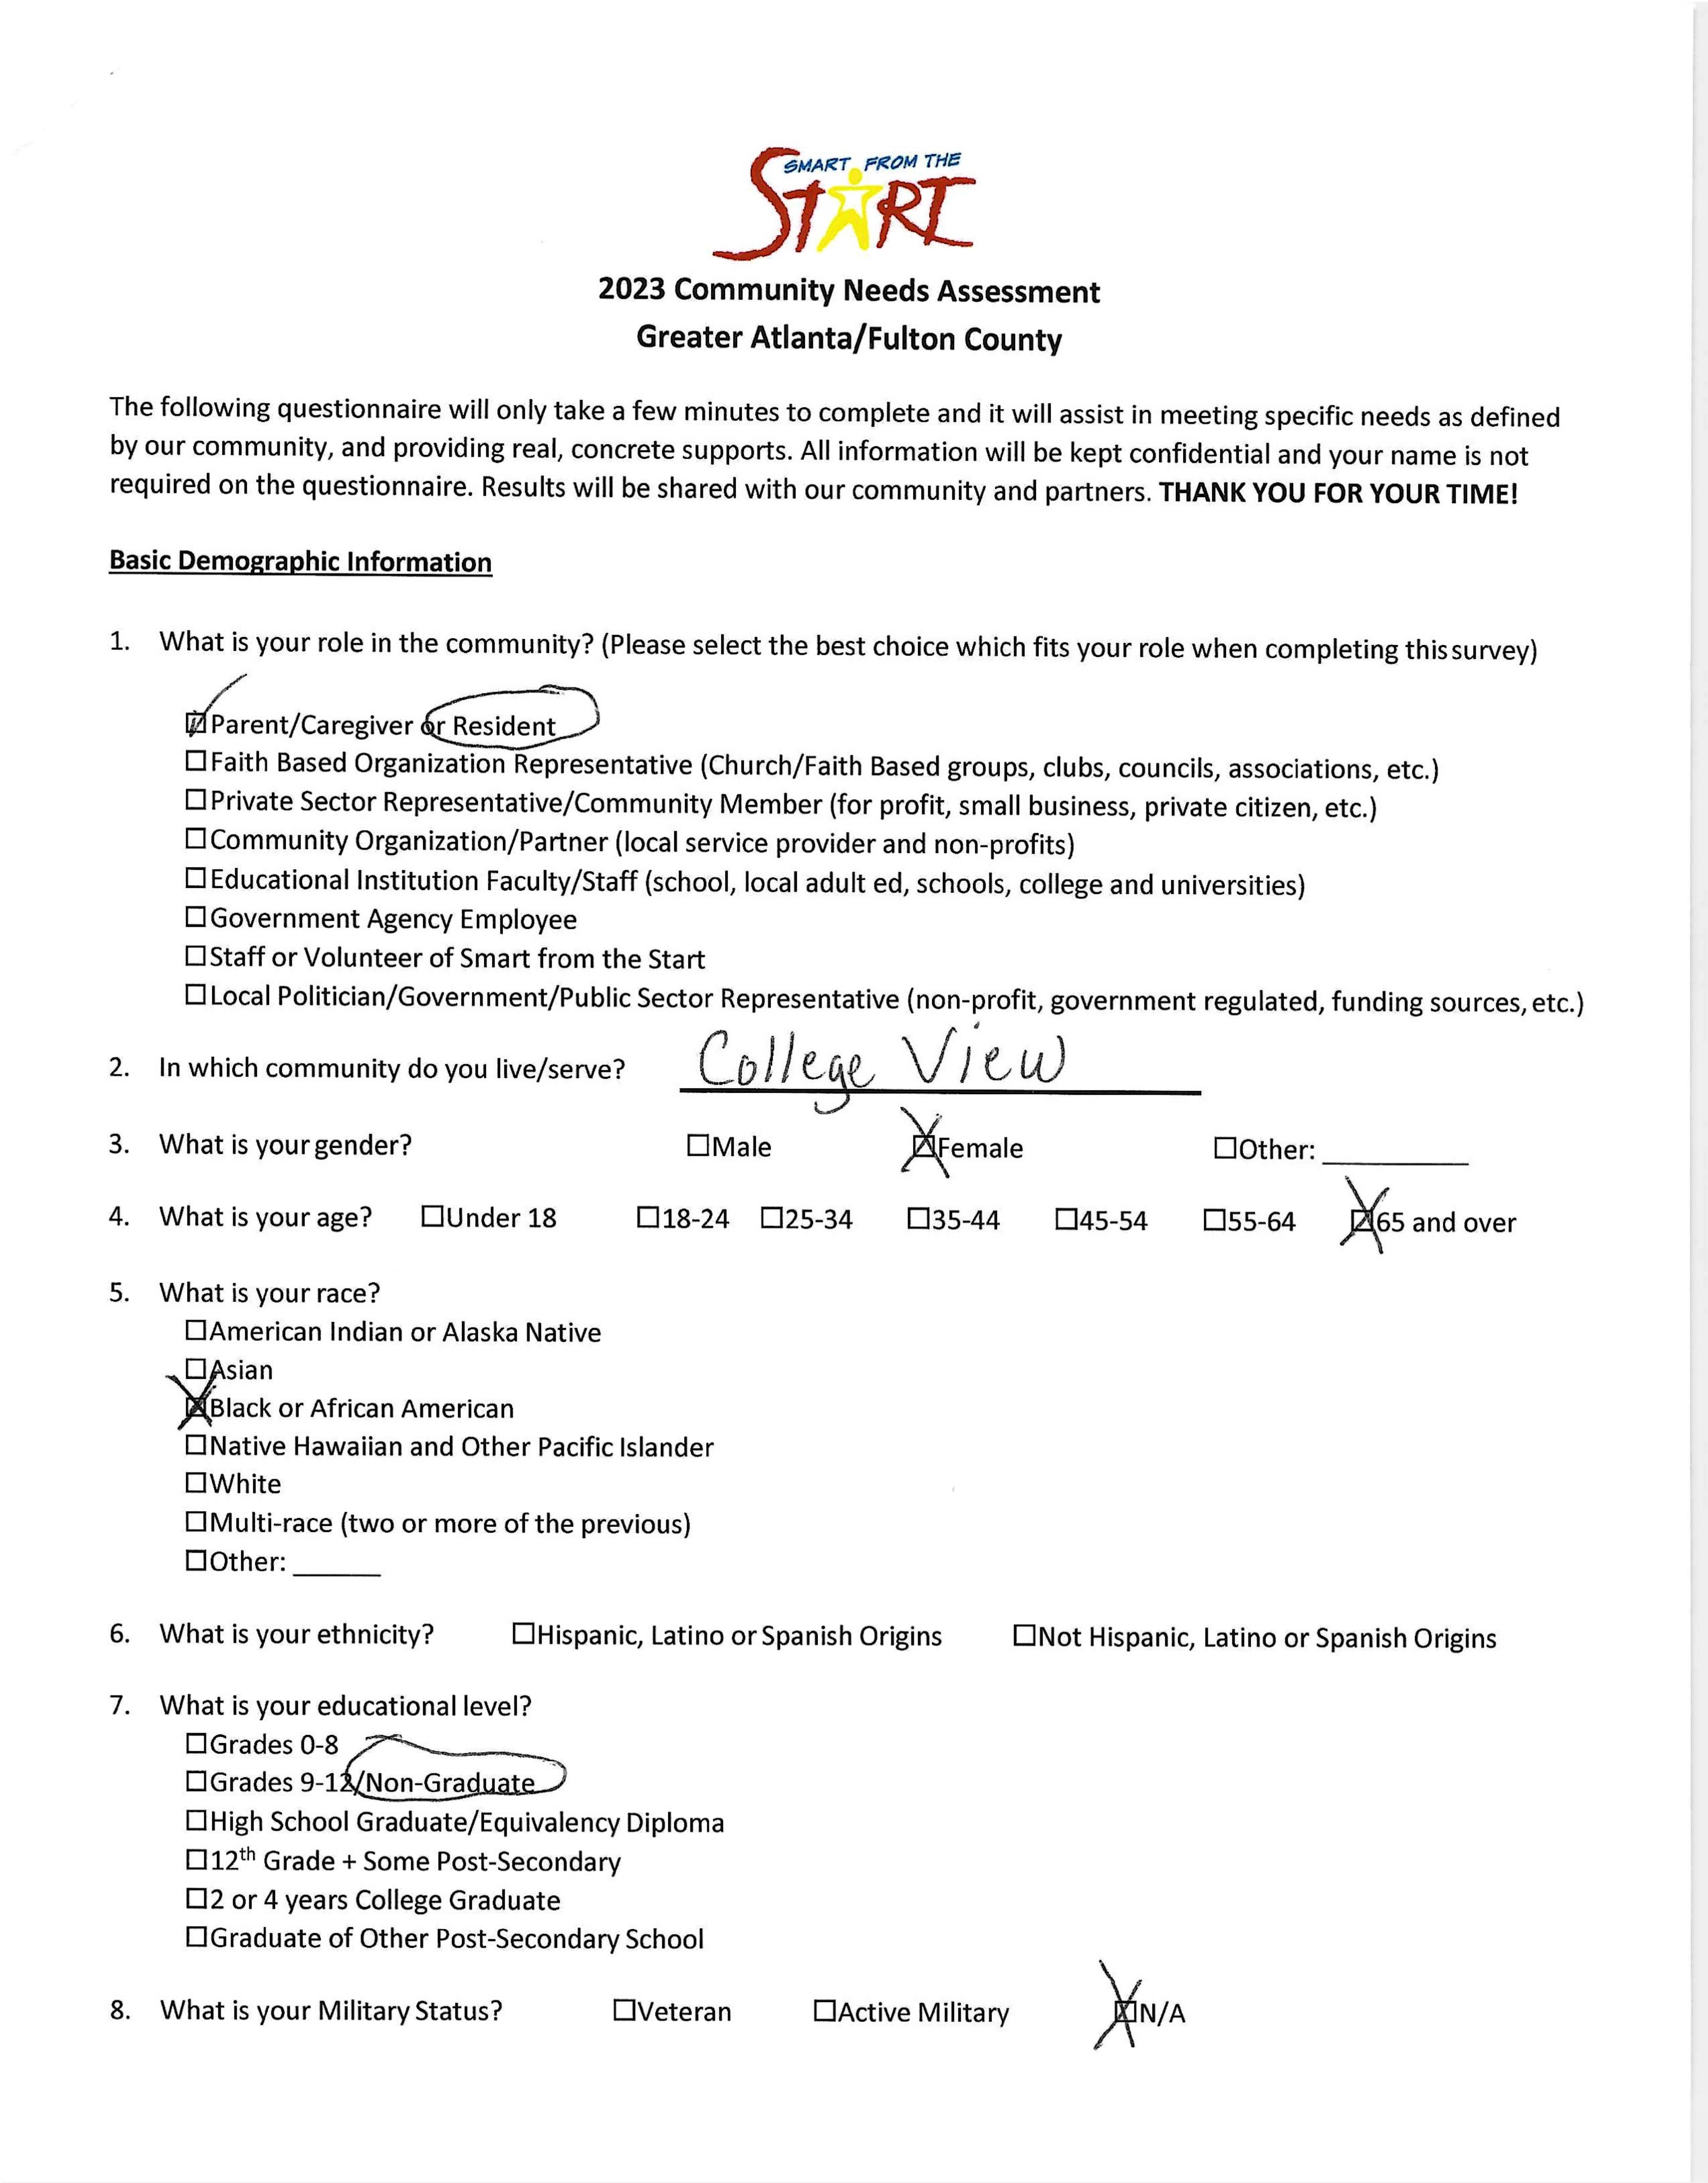 SMART FROM THE
START
2023 Community Needs Assessment
Greater Atlanta/Fulton County
The following questionnaire will only take a few minutes to complete and it will assist in meeting specific needs as defined
by our community, and providing real, concrete supports. All information will be kept confidential and your name is not
required on the questionnaire. Results will be shared with our community and partners. THANK YOU FOR YOUR TIME!
Basic Demographic Information
1. What is your role in the community? (Please select the best choice which fits your role when completing this survey)
☑Parent/Caregiver or Resident
☐Faith Based Organization Representative (Church/Faith Based groups, clubs, councils, associations, etc.)
☐Private Sector Representative/Community Member (for profit, small business, private citizen, etc.)
☐Community Organization/Partner (local service provider and non-profits)
☐Educational Institution Faculty/Staff (school, local adult ed, schools, college and universities)
☐Government Agency Employee
☐Staff or Volunteer of Smart from the Start
☐Local Politician/Government/Public Sector Representative (non-profit, government regulated, funding sources, etc.)
2. In which community do you live/serve? College View
3. What is your gender? ☐Male ☒Female ☐Other: ______
4. What is your age? ☐Under 18 ☐18-24 ☐25-34 ☐35-44 ☐45-54 ☐55-64 ☒65 and over
5. What is your race?
☐American Indian or Alaska Native
☐Asian
☒Black or African American
☐Native Hawaiian and Other Pacific Islander
☐White
☐Multi-race (two or more of the previous)
☐Other: ______
6. What is your ethnicity? ☐Hispanic, Latino or Spanish Origins ☐Not Hispanic, Latino or Spanish Origins
7. What is your educational level?
☐Grades 0-8
☐Grades 9-12/Non-Graduate
☐High School Graduate/Equivalency Diploma
☐12th Grade + Some Post-Secondary
☐2 or 4 years College Graduate
☐Graduate of Other Post-Secondary School
8. What is your Military Status? ☐Veteran ☐Active Military ☒N/A